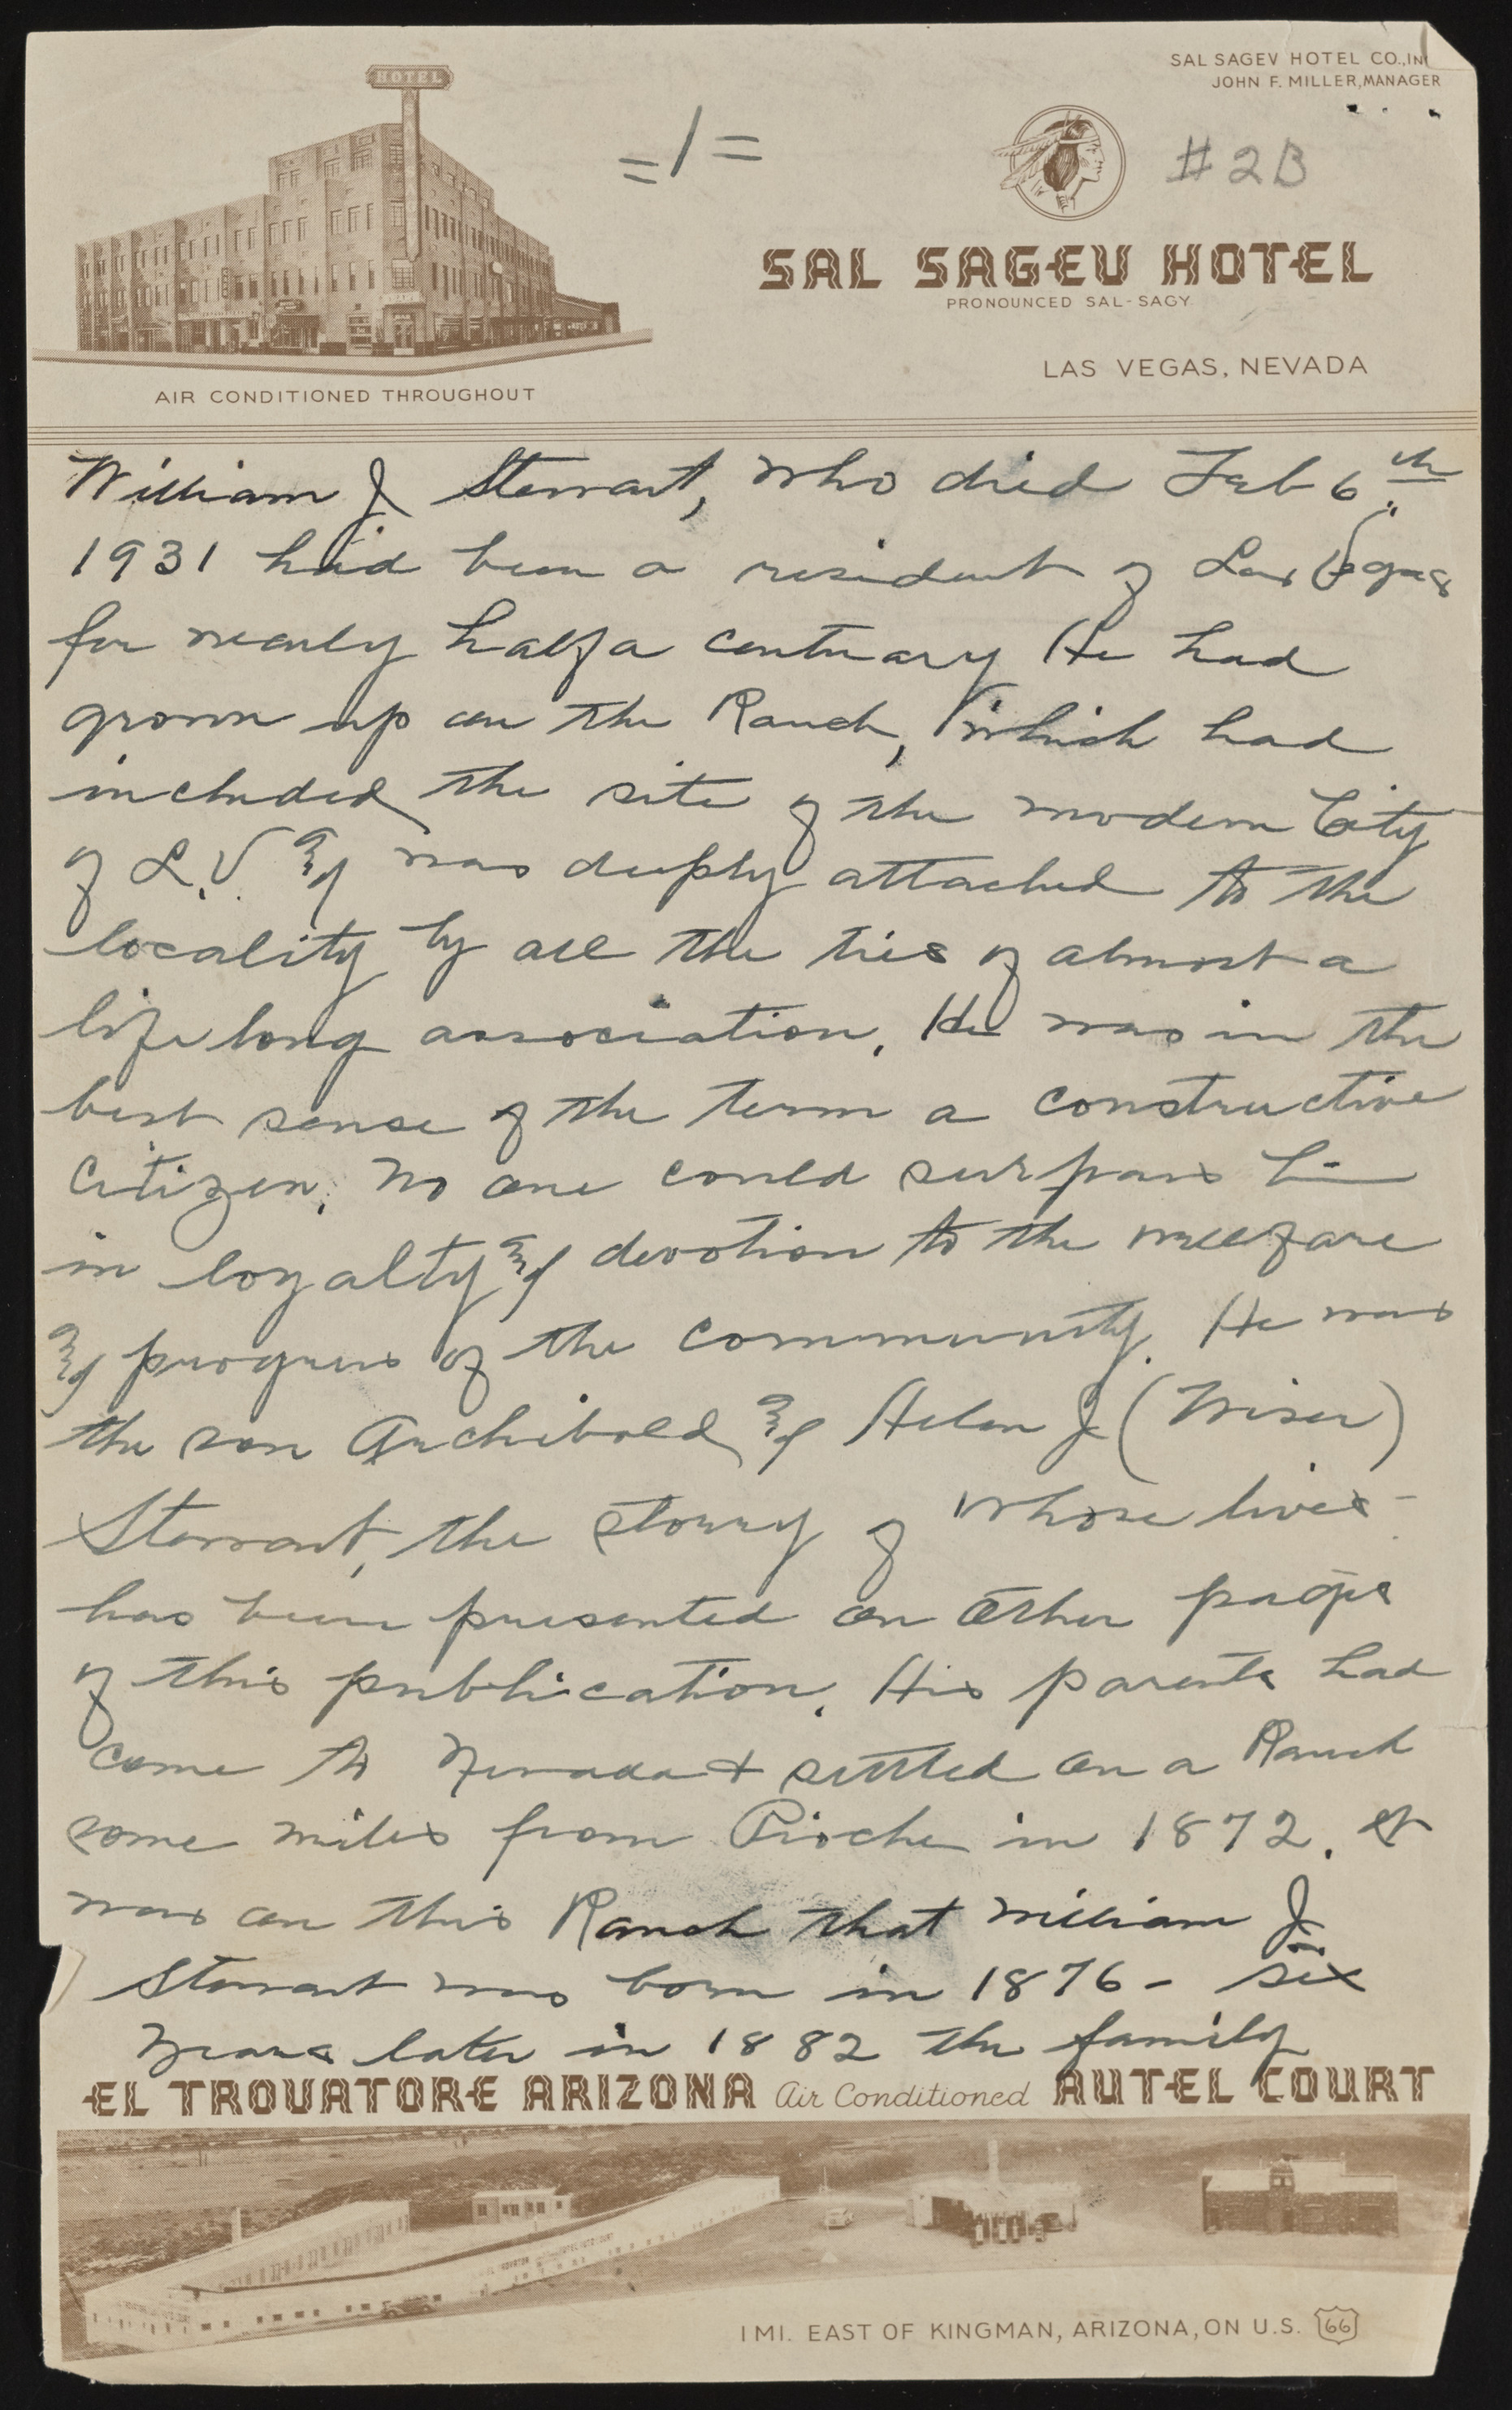 HOTEL
SAL SAGEV HOTEL CO., IN
JOHN F. MILLER, MANAGER
=1=
#2B
SAL SAGEV HOTEL
PRONOUNCED SAL-SAGY
LAS VEGAS, NEVADA
AIR CONDITIONED THROUGHOUT
William J Stewart, who died Feb 6th
1931 had been a resident of Las Vegas
for nearly half a centuary He had
grown up on the Ranch, which had
included the site of the modern City
of L.V. & was deeply attached to the
locality by all the ties of almost a
life long association. He was in the
best sense of the term a constructive
Citizen. No one could surpass him
in loyalty & devotion to the wellfare
& progress of the community. He was
the son Archibald & Helen J (Wiser)
Stewart, the storry of whose lives
has been presented on other pages
of this publication. His parents had
come to Nevada + settled on a Ranch
some miles from Pioche in 1872. It
was on this Ranch that William J
Stewart was born in 1876 - six
years later in 1882 the family
EL TROVATORE ARIZONA Air Conditioned AUTEL COURT
1 MI. EAST OF KINGMAN, ARIZONA, ON U.S. 66